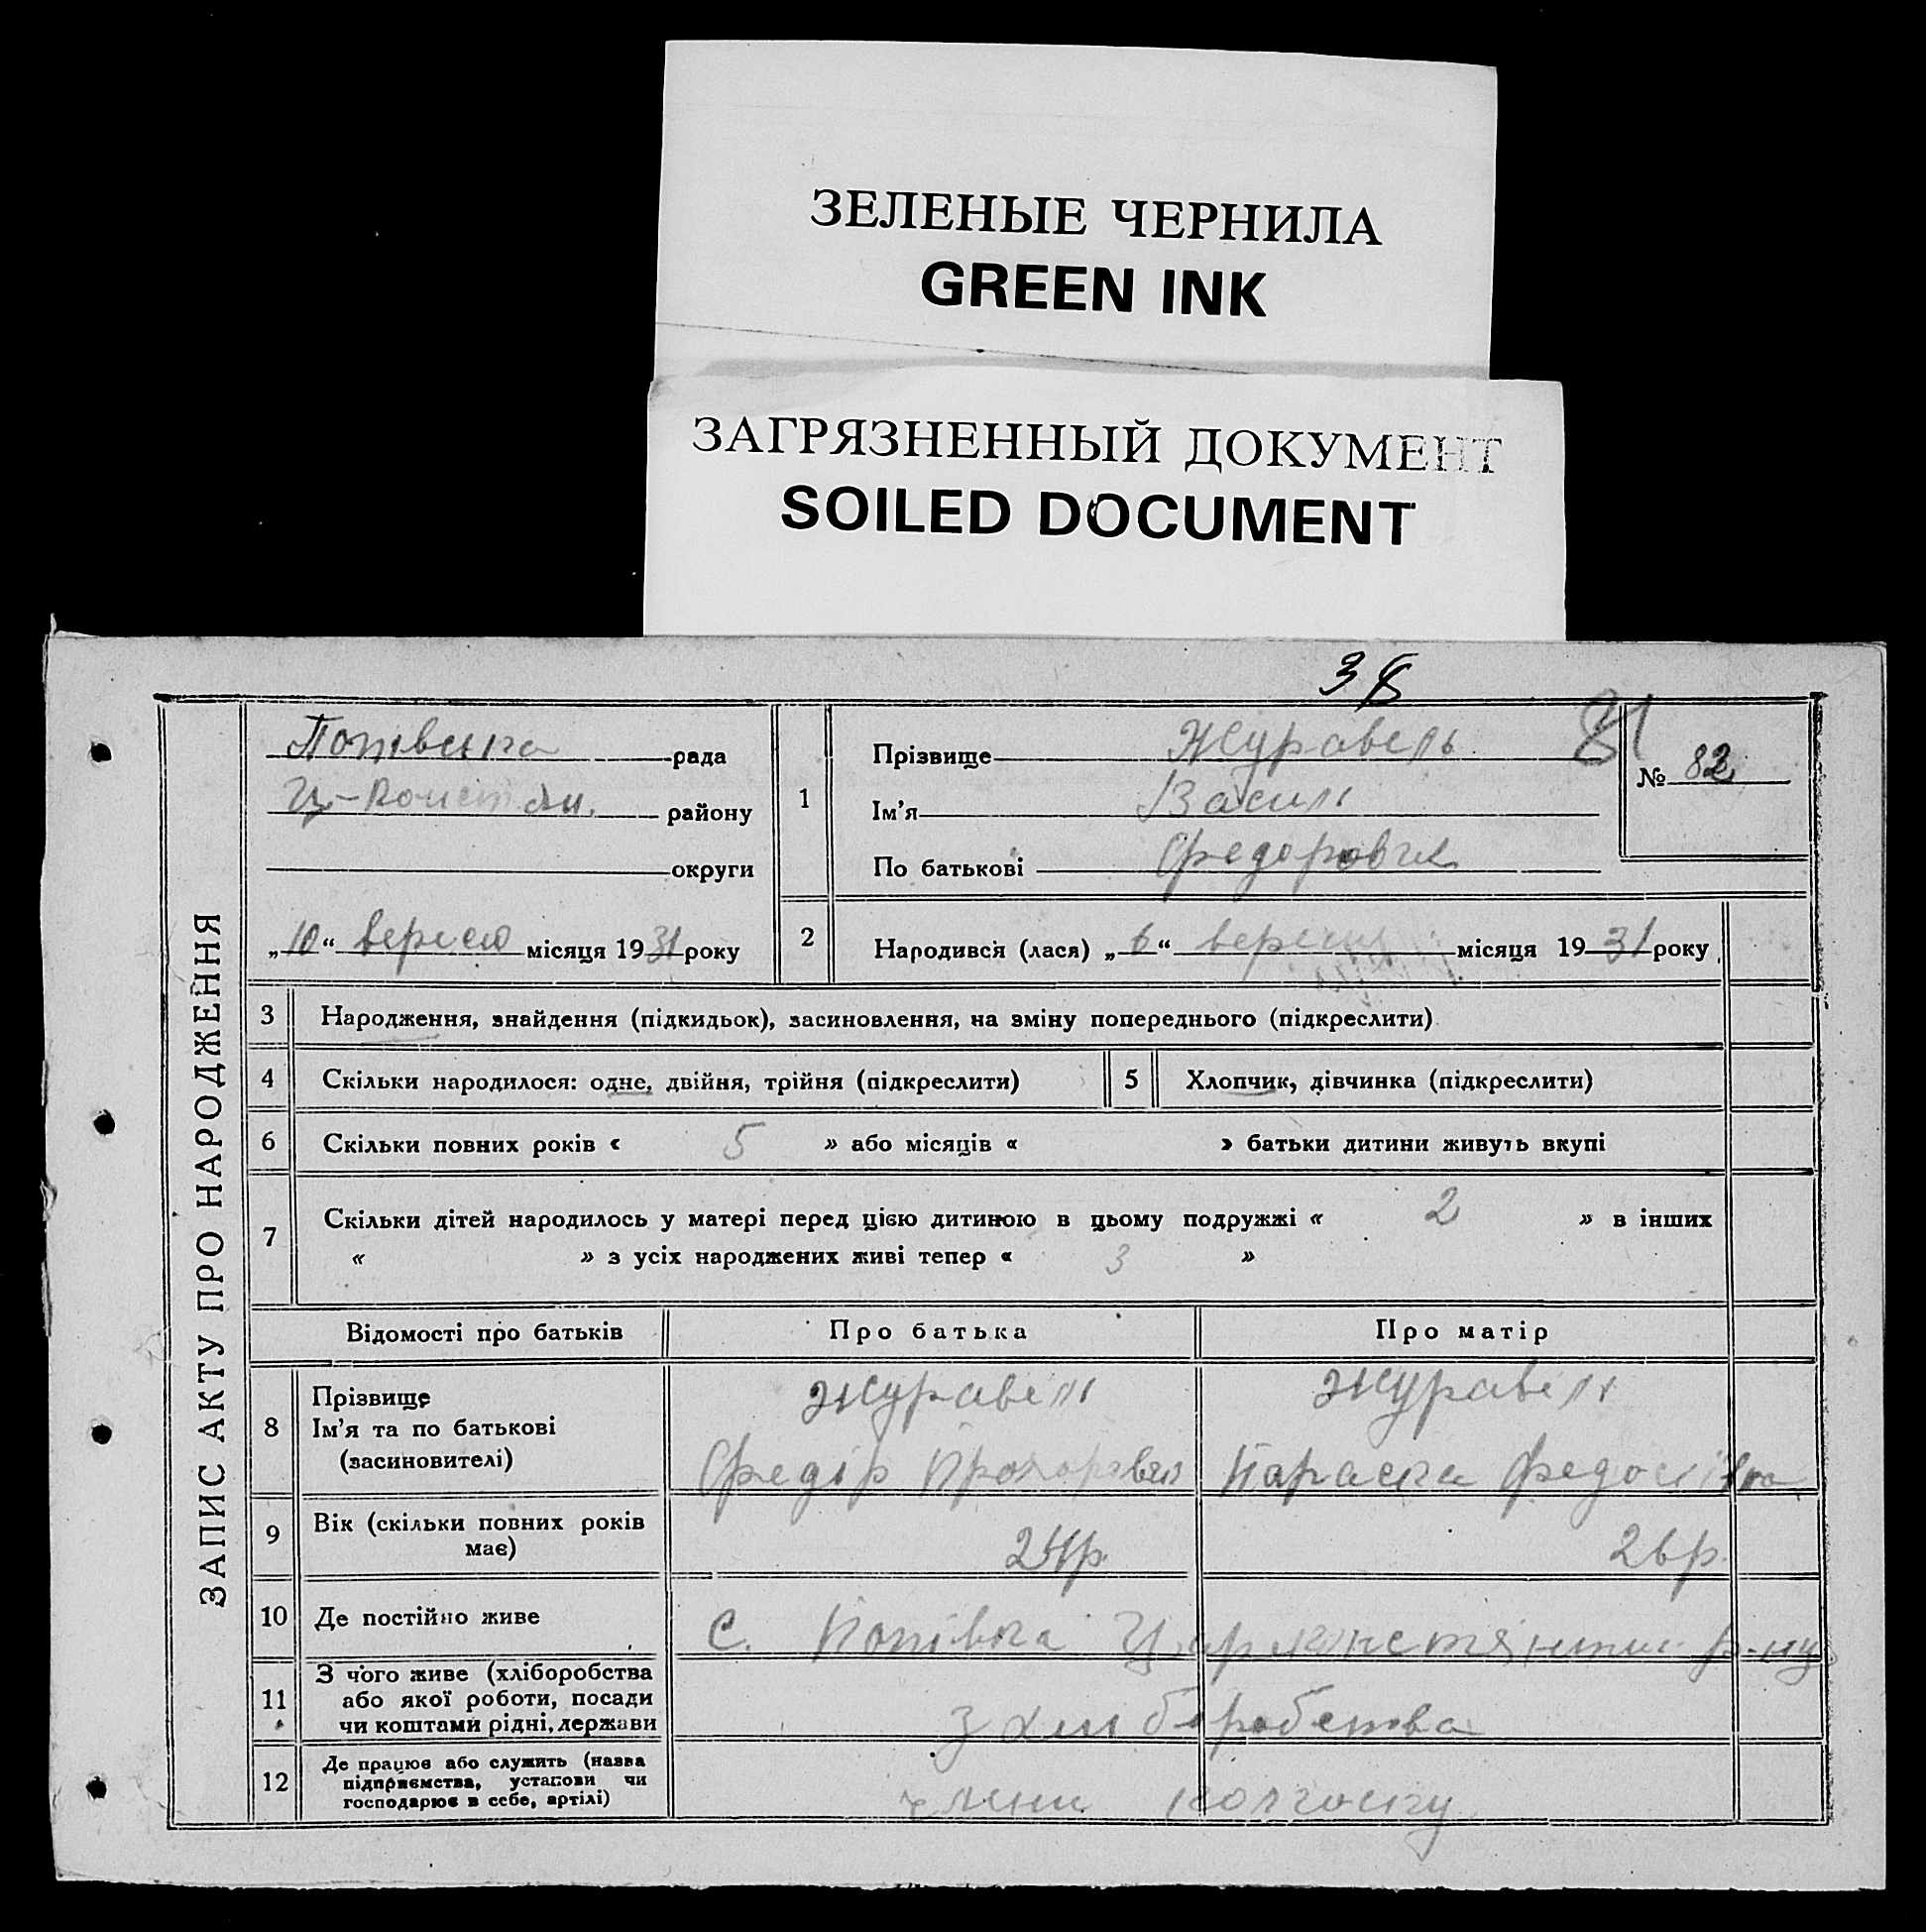 ЗЕЛЕНЫЕ ЧЕРНИЛА
GREEN INK
ЗАГРЯЗНЕННЫЙ ДОКУМЕНТ
SOILED DOCUMENT
ЗАПИС АКТУ ПРО НАРОДЖЕННЯ
Попівська рада
району
округи
„10“ вересня місяця 1931 року
81
№ 82
1
Прізвище Журавель
Ім'я Василь
По батькові Федорович
2 Народився (лася) „6“ вересня місяця 1931 року
3 Народження, знайдення (підкидьок), засиновлення, на зміну попереднього (підкреслити)
4 Скільки народилося: одне, двійня, трійня (підкреслити) 5 Хлопчик, дівчинка (підкреслити)
6 Скільки повних років « 5 » або місяців « » батьки дитини живуть вкупі
7 Скільки дітей народилось у матері перед цією дитиною в цьому подружжі « 2 » в інших
« » з усіх народжених живі тепер « 3 »
Відомості про батьків Про батька Про матір
8 Прізвище Журавель Журавель
Ім'я та по батькові
(засиновителі) Федір Прохорович Параска Федосіївна
9 Вік (скільки повних років
має) 26р.
10 Де постійно живе с. Попівка р-ну
11 З чого живе (хліборобства
або якої роботи, посади
чи коштами рідні, держави з хліборобства
12 Де працює або служить (назва
підприємства, установи чи
господарює в себе, артілі) члени колгоспу